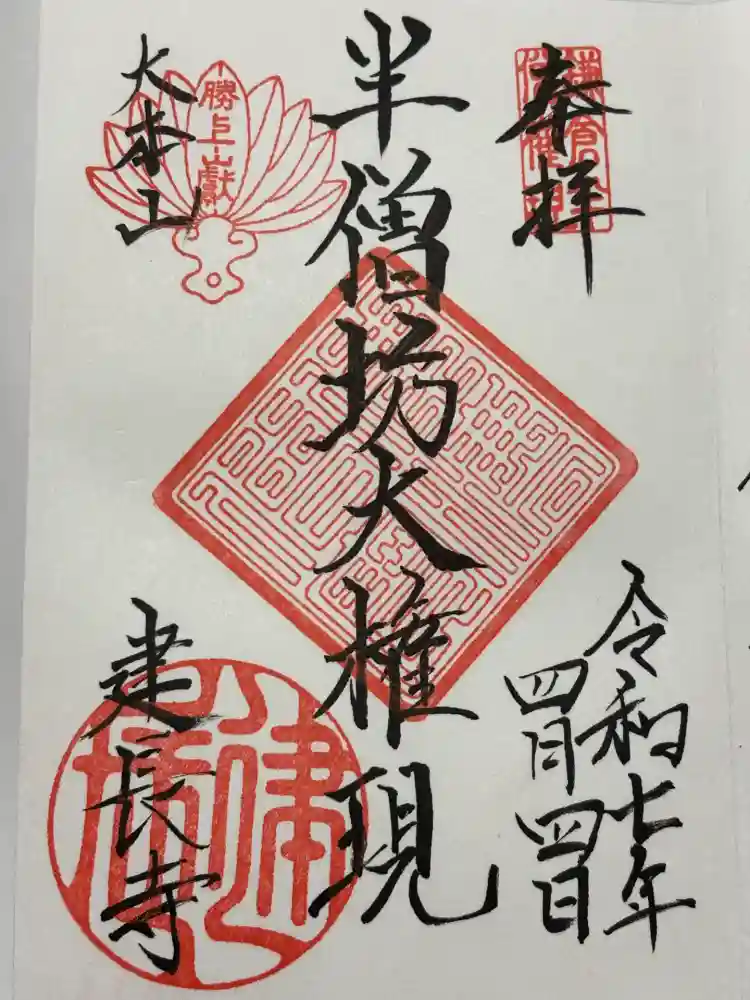 奉拝
令和七年
四月四日
半僧坊大権現
大本山
勝上山獻
建長寺